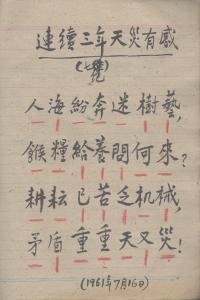 連續三年天災有感
(七絕)
人海紛奔迷樹藝,
餱糧給養問何來?
耕耘已苦乏机械,
矛盾重重天又災!
(1961年7月16日)